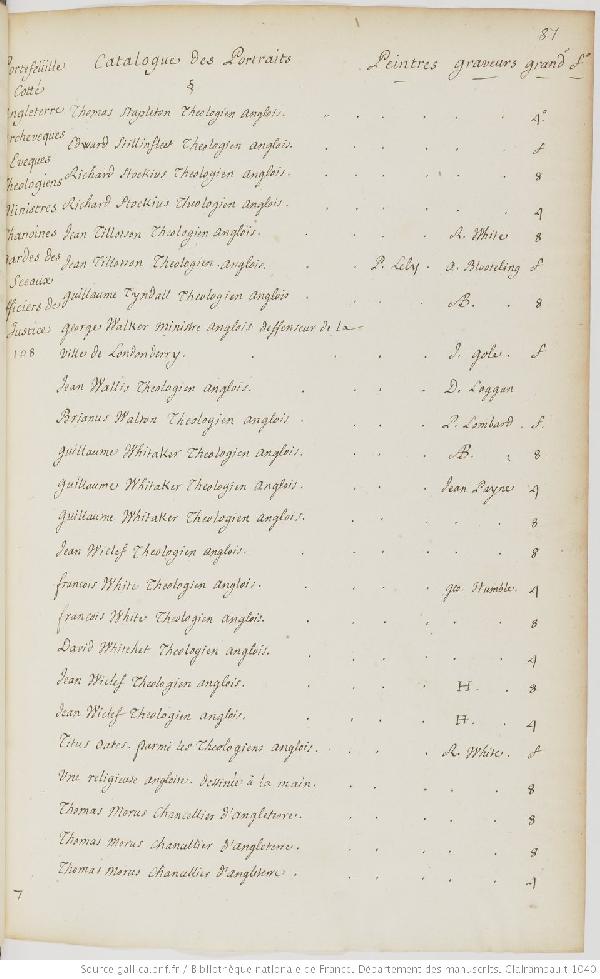 81
Portefeüille
Cotté
Angleterre
Archeveques
Eveques
Theologiens
Ministres
Chanoines
Gardes des
Sceaux
officiers de
Justice
108
Catalogue des Portraits Peintres graveurs grand.r
§
Thomas Stapleton Theologien Anglois. 4°
Edward Stillinfleet Theologien Anglois. f
Richard Stockius Theologien Anglois. 8
Richard Stockius Theologien Anglois. 4
Jean Tillotson Theologien Anglois. R. White 8
Jean Tillotson Theologien Anglois. P. Lely. A. Blooteling f
Guillaume Tyndall Theologien Anglois AB. 8
George Walker Ministre Anglois deffenseur de la-
ville de Londonderry. J. Gole. f
Jean Wallis Theologien Anglois. D. Loggan
Brianus Walton Theologien Anglois. P. Lombard. f.
Guillaume Whitaker Theologien Anglois. AB. 8
Guillaume Whitaker Theologien Anglois. Jean Payne 4
Guillaume Whitaker Theologien Anglois. 8
Jean Wiclef Theologien Anglois. 8
francois White Theologien Anglois. Humble. 4
francois White Theologien Anglois. 8
David Whitehet Theologien Anglois. 4
Jean Wiclef Theologien Anglois. H. 8
Jean Wiclef Theologien Anglois. H. 4
Titus Oates. parmi les Theologiens Anglois. R. White. f
Une religieuse Angloise. dessinée à la main. 8
Thomas Morus Chancellier d'Angleterre. 8
Thomas Morus Chancellier d'Angleterre. 8
Thomas Morus Chancellier d'Angleterre. 4
7
Source gallica.bnf.fr / Bibliothèque nationale de France. Département des manuscrits. Clairambault 1040